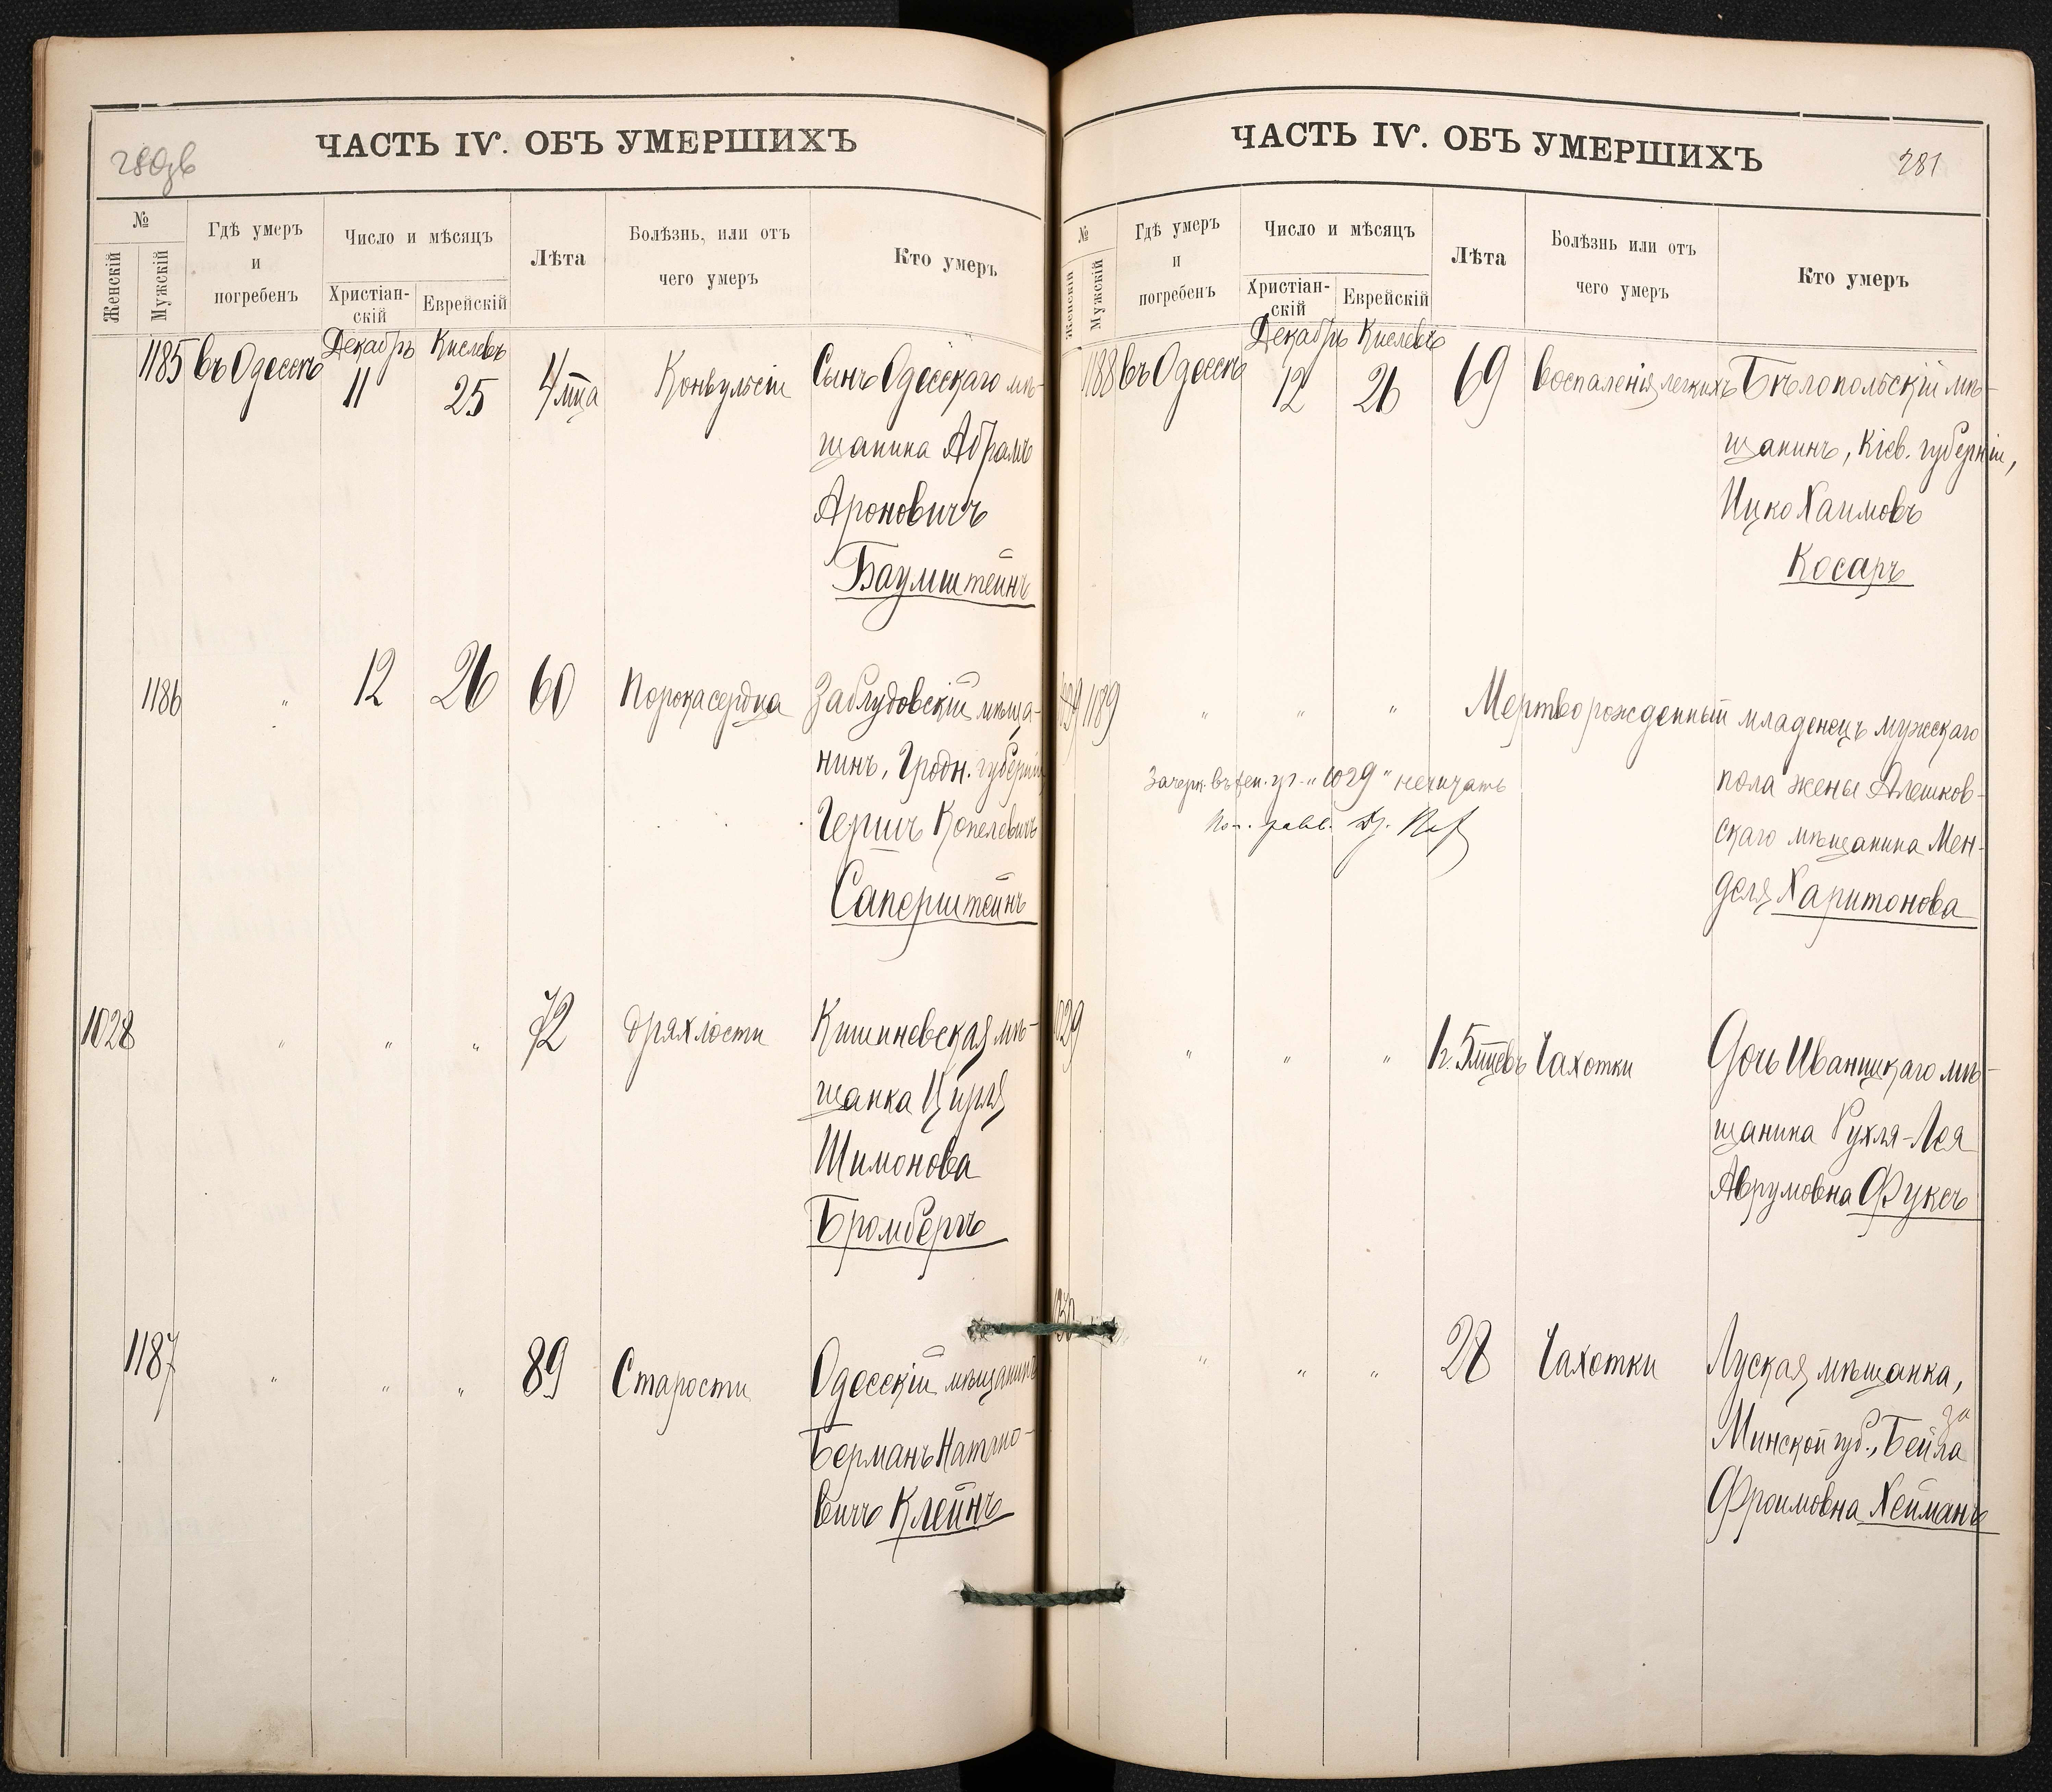 280об
ЧАСТЬ IV. ОБЪ УМЕРШИХЪ
№
Женскій
Мужскій
Гдѣ умеръ
и
погребенъ
Число и мѣсяцъ
Христіан-
скій
Еврейскій
Лѣта
Болѣзнь, или отъ
чего умеръ
Кто умеръ
Декабрь Кислевъ
1185 въ Одессѣ 11 25 4 мца Конвульсіи Сынъ Одесскаго мѣ-
щанина Абрамъ
Ароновичъ
Баумштейнъ
1186 " 12 26 60 Порока сердца Заблудовскій мѣща-
нинъ, Гродн. губерніи
Гершъ Копелевичъ
Саперштейнъ
1028 " " " 72 Дряхлости Кишиневская мѣ-
щанка Цирля
Шимонова
Бромбергъ
1187 " " " 89 Старости Одесскій мѣщанинъ
Берманъ Натано-
вичъ Клейнъ
ЧАСТЬ IV. ОБЪ УМЕРШИХЪ
281
№
Женскій
Мужскій
Гдѣ умеръ
и
погребенъ
Число и мѣсяцъ
Христіан-
скій
Еврейскій
Лѣта
Болѣзнь или отъ
чего умеръ
Кто умеръ
Декабрь Кислевъ
1188 въ Одессѣ 12 26 69 Воспаленія легкихъ Бѣлопольскій мѣ-
щанинъ, Кіев. губерніи,
Ицко Хаимовъ
Косаръ
1029 1189 " " " Мертворожденный младенецъ мужскаго
пола жены Алешков-
скаго мѣщанина Мен-
деля Харитонова
Зачерк. въ "1029" не читать
1029 " " " 1 г. 5 мцевъ Чахотки Дочь Иваницкаго мѣ-
щанина Рухля-Лея
Аврумовна Фуксъ
1030 " " " 28 Чахотки Луская мѣщанка,
Минской губ., Бейла
за
Фроимовна Хейманъ